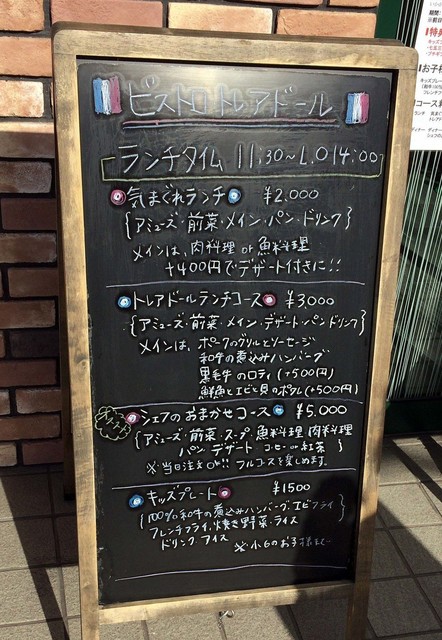 ビストロ トレアドール
ランチタイム 11:30〜L.O14:00
気まぐれランチ ¥2,000
{アミューズ・前菜・メイン・パン・ドリンク}
メインは、肉料理 or 魚料理
+400円でデザート付きに!!
トレアドールランチコース ¥3,000
{アミューズ・前菜・メイン・デザート・パン ドリンク}
メインは、ポークのグリルとソーセージ
和牛の煮込みハンバーグ
黒毛牛のロティ(+500円)
鮮魚とエビと貝のポワレ(+500円)
シェフのおまかせコース ¥5,000
{アミューズ・前菜・スープ 魚料理 肉料理
パン デザート コーヒー or 紅茶 }
※当日注文OK!! フルコースを楽しめます。
キッズプレート ¥1500
{100%和牛の煮込みハンバーグ・エビフライ
フレンチフライ・焼き野菜・ライス
ドリンク・アイス
※小6のお子様まで
期間
特典
お子様
コース
ランチ
ディナー